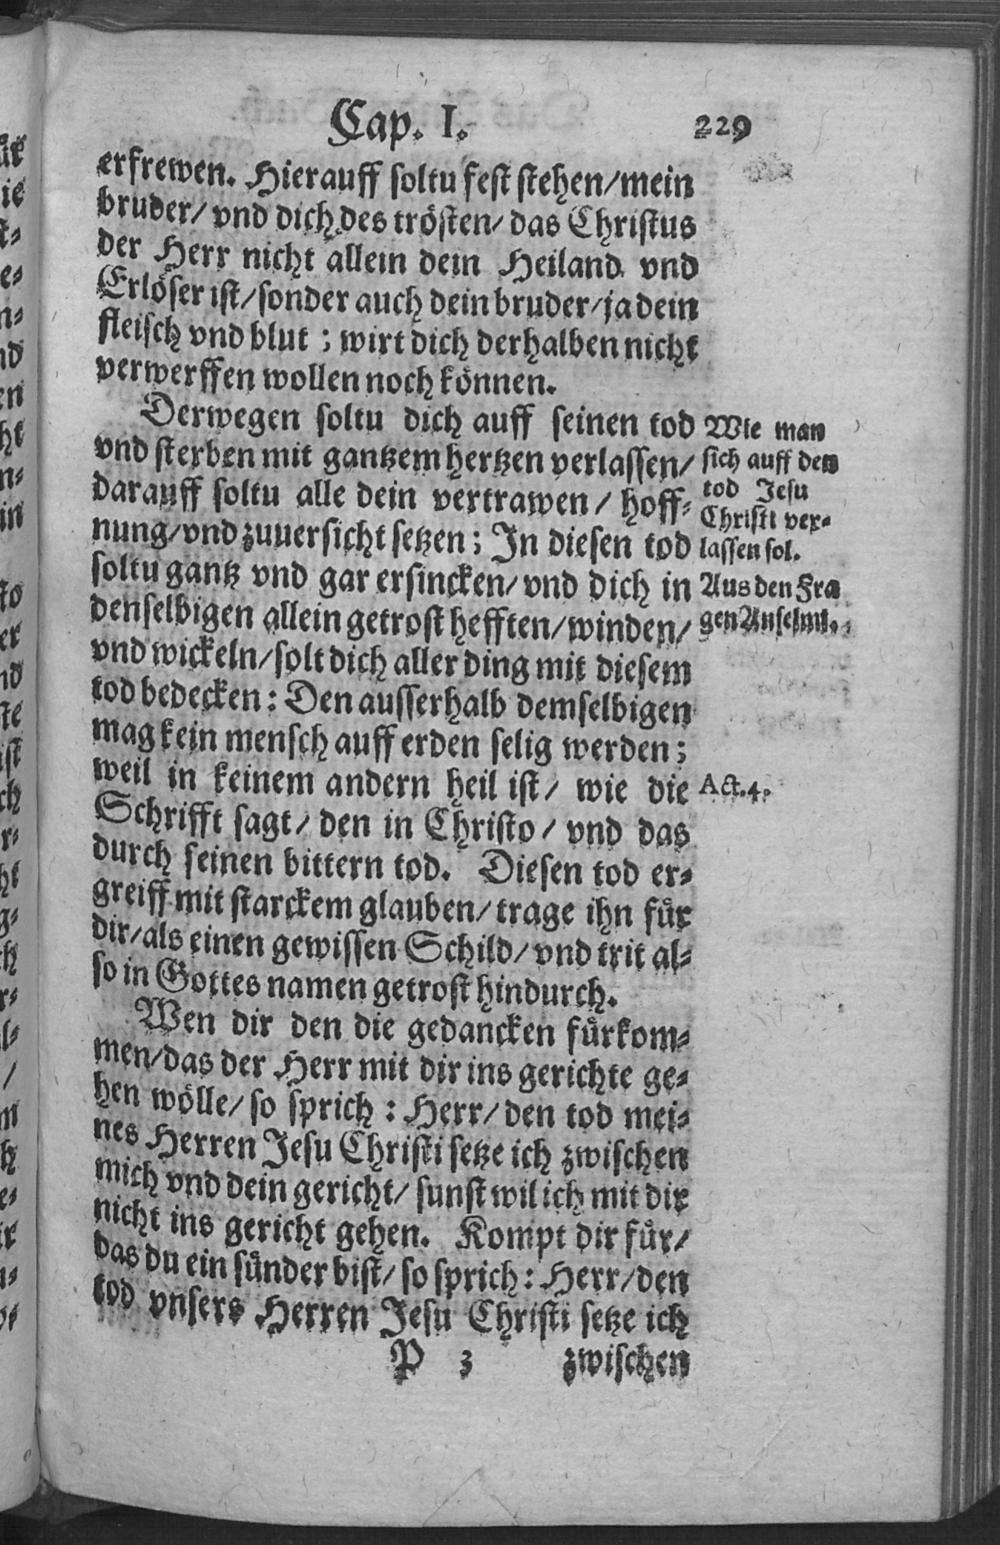 Cap. I. 229
erfrewen. Hierauff soltu fest stehen/mein
bruder/ vnd dich des trösten/ das Christus
der Herr nicht allein dein Heiland vnd
Erlöser ist/sonder auch dein bruder/ja dein
fleisch vnd blut ; wirt dich derhalben nicht
verwerffen wollen noch können.
Derwegen soltu dich auff seinen tod
vnd sterben mit gantzem hertzen verlassen/
darauff soltu alle dein vertrawen / hoff-
nung/vnd zuuersicht setzen ; In diesen tod
soltu gantz vnd gar ersincken/ vnd dich in
denselbigen allein getrost hefften/winden/
vnd wickeln/solt dich aller ding mit diesem
tod bedecken : Den ausserhalb demselbigen
mag kein mensch auff erden selig werden ;
weil in keinem andern heil ist/ wie die
Schrifft sagt/ den in Christo / vnd das
durch seinen bittern tod. Diesen tod er-
greiff mit starckem glauben/trage ihn für
dir/als einen gewissen Schild/vnd trit al-
so in Gottes namen getrost hindurch.
Wen dir den die gedancken fürkom-
men/das der Herr mit dir ins gerichte ge-
hen wölle/ so sprich : Herr/ den tod mei-
nes Herren Jesu Christi setze ich zwischen
mich vnd dein gericht/ sunst wil ich mit dir
nicht ins gericht gehen. Kompt dir für/
das du ein sünder bist/ so sprich : Herr/den
tod vnsers Herren Jesu Christi setze ich
P 3 zwischen
Wie man
sich auff den
tod Jesu
Christi ver-
lassen sol.
Aus den Fra
gen Anselmi.
Act. 4.